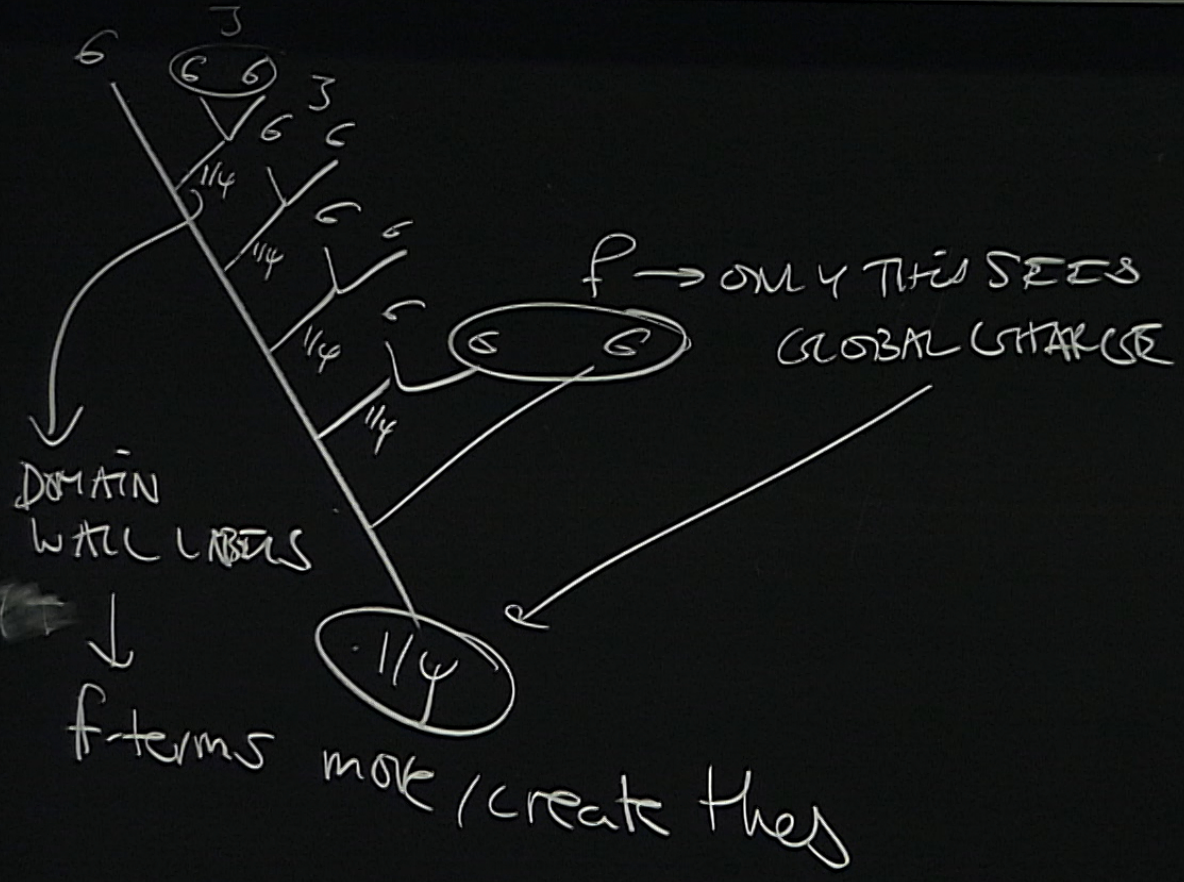 J
σ σ σ
J
σ σ
1/ψ
σ σ
1/ψ
f → ONLY THIS SEES
GLOBAL CHARGE
σ σ σ
1/ψ
1/ψ
DOMAIN
WALL LABELS
↓
1/ψ
f-terms move/create thes